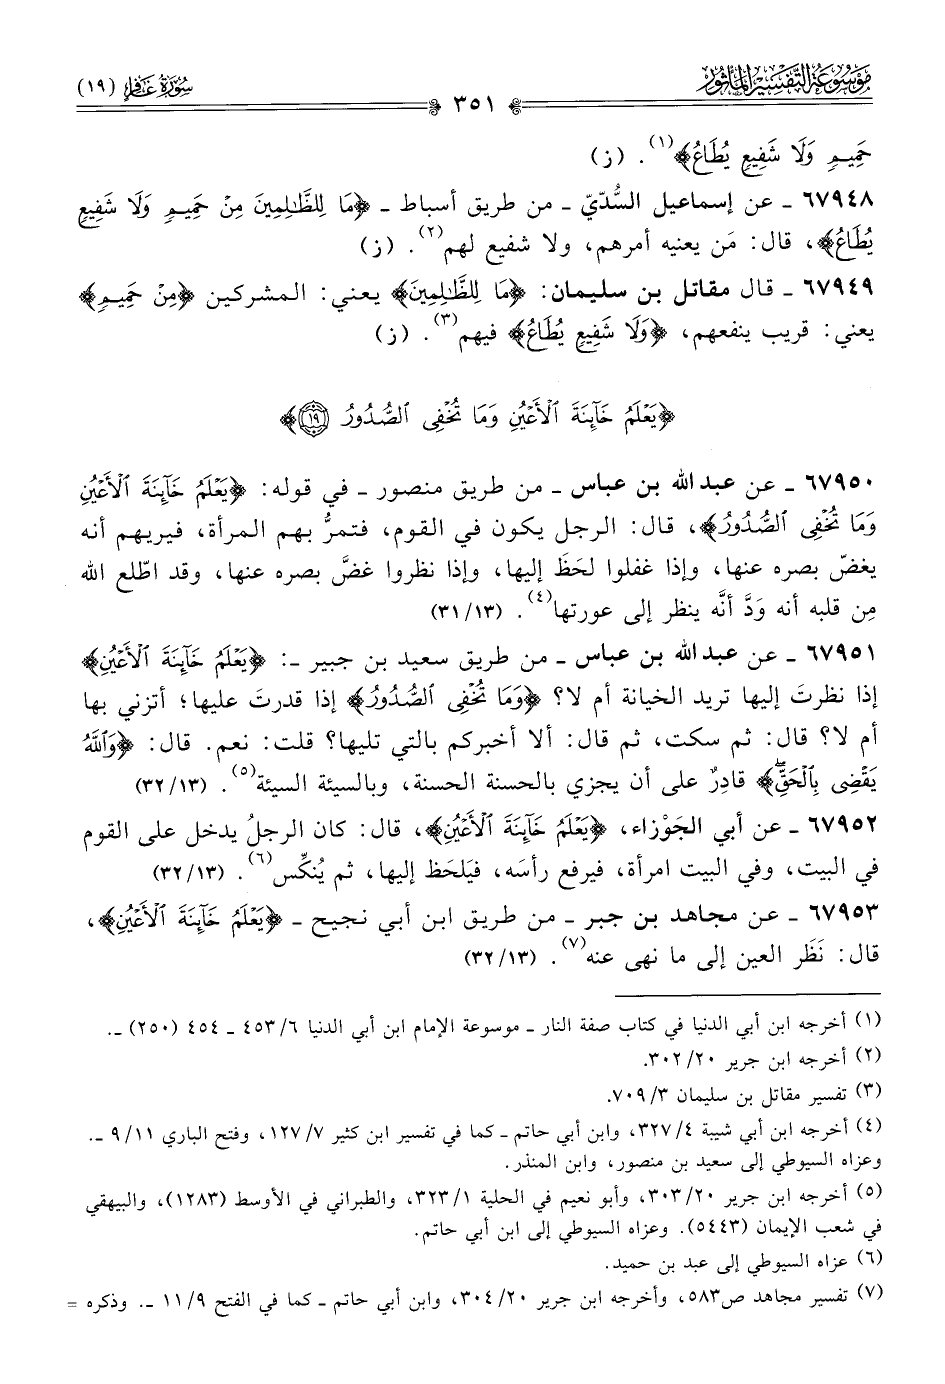 مَوْسُوعَة التَّفْسِير المَأْثُور
٣٥١
سُورَةُ غَافِر (١٩)
حَمِيمٍ وَلَا شَفِيعٍ يُطَاعُ﴾(١). (ز)
٦٧٩٤٨ ـ عن إسماعيل السُّدّيّ ـ من طريق أسباط ـ ﴿مَا لِلظَّٰلِمِينَ مِنْ حَمِيمٍ وَلَا شَفِيعٍ
يُطَاعُ﴾، قال: مَن يعنيه أمرهم، ولا شفيع لهم(٢). (ز)
٦٧٩٤٩ ـ قال مقاتل بن سليمان: ﴿مَا لِلظَّٰلِمِينَ﴾ يعني: المشركين ﴿مِنْ حَمِيمٍ﴾
يعني: قريب ينفعهم، ﴿وَلَا شَفِيعٍ يُطَاعُ﴾ فيهم(٣). (ز)
﴿يَعْلَمُ خَآئِنَةَ ٱلْأَعْيُنِ وَمَا تُخْفِى ٱلصُّدُورُ ١٩﴾
٦٧٩٥٠ ـ عن عبد الله بن عباس ـ من طريق منصور ـ في قوله: ﴿يَعْلَمُ خَآئِنَةَ ٱلْأَعْيُنِ
وَمَا تُخْفِى ٱلصُّدُورُ﴾، قال: الرجل يكون في القوم، فتمرُّ بهم المرأة، فيريهم أنه
يغضّ بصره عنها، وإذا غفلوا لحَظَ إليها، وإذا نظروا غضَّ بصره عنها، وقد اطّلع الله
مِن قلبه أنه وَدَّ أنَّه ينظر إلى عورتها(٤). (١٣/ ٣١)
٦٧٩٥١ ـ عن عبد الله بن عباس ـ من طريق سعيد بن جبير ـ: ﴿يَعْلَمُ خَآئِنَةَ ٱلْأَعْيُنِ﴾
إذا نظرتَ إليها تريد الخيانة أم لا؟ ﴿وَمَا تُخْفِى ٱلصُّدُورُ﴾ إذا قدرتَ عليها؛ أتزني بها
أم لا؟ قال: ثم سكت، ثم قال: ألا أخبركم بالتي تليها؟ قلت: نعم. قال: ﴿وَٱللَّهُ
يَقْضِى بِٱلْحَقِّ﴾ قادِرٌ على أن يجزي بالحسنة الحسنة، وبالسيئة السيئة(٥). (١٣/ ٣٢)
٦٧٩٥٢ ـ عن أبي الجَوْزاء، ﴿يَعْلَمُ خَآئِنَةَ ٱلْأَعْيُنِ﴾، قال: كان الرجلُ يدخل على القوم
في البيت، وفي البيت امرأة، فيرفع رأسَه، فيَلحَظ إليها، ثم يُنكِّس(٦). (١٣/ ٣٢)
٦٧٩٥٣ ـ عن مجاهد بن جبر ـ من طريق ابن أبي نجيح ـ ﴿يَعْلَمُ خَآئِنَةَ ٱلْأَعْيُنِ﴾،
قال: نَظَر العين إلى ما نهى عنه(٧). (١٣/ ٣٢)
(١) أخرجه ابن أبي الدنيا في كتاب صفة النار ـ موسوعة الإمام ابن أبي الدنيا ٦/ ٤٥٣ ـ ٤٥٤ (٢٥٠) ـ.
(٢) أخرجه ابن جرير ٢٠/ ٣٠٢.
(٣) تفسير مقاتل بن سليمان ٣/ ٧٠٩.
(٤) أخرجه ابن أبي شيبة ٤/ ٣٢٧، وابن أبي حاتم ـ كما في تفسير ابن كثير ٧/ ١٢٧، وفتح الباري ١١/ ٩ ـ.
وعزاه السيوطي إلى سعيد بن منصور، وابن المنذر.
(٥) أخرجه ابن جرير ٢٠/ ٣٠٣، وأبو نعيم في الحلية ١/ ٣٢٣، والطبراني في الأوسط (١٢٨٣)، والبيهقي
في شعب الإيمان (٥٤٤٣). وعزاه السيوطي إلى ابن أبي حاتم.
(٦) عزاه السيوطي إلى عبد بن حميد.
(٧) تفسير مجاهد ص٥٨٣، وأخرجه ابن جرير ٢٠/ ٣٠٤، وابن أبي حاتم ـ كما في الفتح ٩/ ١١ ـ. وذكره =